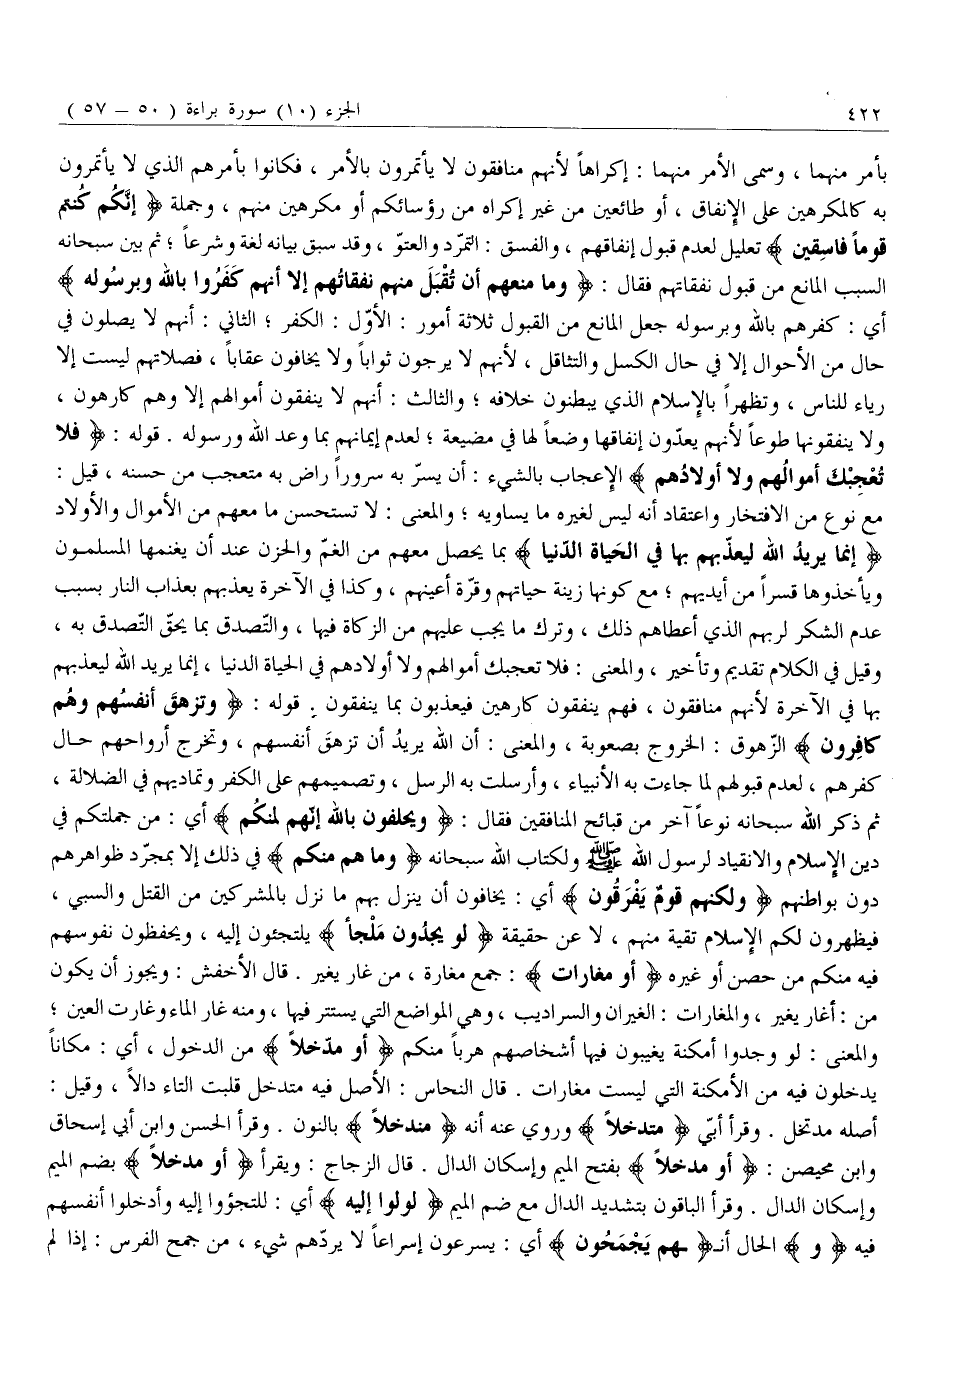 ٤٢٢ الجزء (١٠) سورة براءة ( ٥٠ – ٥٧ )
بأمر منهما ، وسمى الأمر منهما : إكراهاً لأنهم منافقون لا يأتمرون بالأمر ، فكانوا بأمرهم الذي لا يأتمرون
به كالمكرهين على الإنفاق ، أو طائعين من غير إكراه من رؤسائكم أو مكرهين منهم ، وجملة ﴿ إنَّكُم كُنتم
قوماً فاسِقين ﴾ تعليل لعدم قبول إنفاقهم ، والفسق : التمرّد والعتوّ ، وقد سبق بيانه لغة وشرعاً ؛ ثم بين سبحانه
السبب المانع من قبول نفقاتهم فقال : ﴿ وما منعهم أن تُقْبَلَ منهم نفقاتُهم إلا أنهم كَفَرُوا بالله وبرسُوله ﴾
أي : كفرهم بالله وبرسوله جعل المانع من القبول ثلاثة أمور : الأوّل : الكفر ؛ الثاني : أنهم لا يصلون في
حال من الأحوال إلا في حال الكسل والتثاقل ، لأنهم لا يرجون ثواباً ولا يخافون عقاباً ، فصلاتهم ليست إلا
رياء للناس ، وتظهراً بالإسلام الذي يبطنون خلافه ؛ والثالث : أنهم لا ينفقون أموالهم إلا وهم كارهون ،
ولا ينفقونها طوعاً لأنهم يعدّون إنفاقها وضعاً لها في مضيعة ؛ لعدم إيمانهم بما وعد الله ورسوله . قوله : ﴿ فلا
تُعْجِبْكَ أموالُهم ولا أولادُهم ﴾ الإعجاب بالشيء : أن يسرّ به سروراً راض به متعجب من حسنه ، قيل :
مع نوع من الافتخار واعتقاد أنه ليس لغيره ما يساويه ؛ والمعنى : لا تستحسن ما معهم من الأموال والأولاد
﴿ إنما يريدُ الله ليعذّبهم بها في الحَياة الدّنيا ﴾ بما يحصل معهم من الغمّ والحزن عند أن يغنمها المسلمون
ويأخذوها قسراً من أيديهم ؛ مع كونها زينة حياتهم وقرّة أعينهم ، وكذا في الآخرة يعذبهم بعذاب النار بسبب
عدم الشكر لربهم الذي أعطاهم ذلك ، وترك ما يجب عليهم من الزكاة فيها ، والتّصدق بما يحقّ التّصدق به ،
وقيل في الكلام تقديم وتأخير ، والمعنى : فلا تعجبك أموالهم ولا أولادهم في الحياة الدنيا ، إنما يريد الله ليعذبهم
بها في الآخرة لأنهم منافقون ، فهم ينفقون كارهين فيعذبون بما ينفقون . قوله : ﴿ وتزهقَ أنفسُهم وهُم
كافِرون ﴾ الزّهوق : الخروج بصعوبة ، والمعنى : أن الله يريدُ أن تزهقَ أنفسهم ، وتخرج أرواحهم حال
كفرهم ، لعدم قبولهم لما جاءت به الأنبياء ، وأرسلت به الرسل ، وتصميمهم على الكفر وتماديهم في الضلالة ،
ثم ذكر الله سبحانه نوعاً آخر من قبائح المنافقين فقال : ﴿ ويحلفون بالله إنّهم لمنكُم ﴾ أي : من جملتكم في
دين الإسلام والانقياد لرسول الله ﷺ ولكتاب الله سبحانه ﴿ وما هم منكم ﴾ في ذلك إلا بمجرّد ظواهرهم
دون بواطنهم ﴿ ولكنهم قومٌ يَفْرَقُون ﴾ أي : يخافون أن ينزل بهم ما نزل بالمشركين من القتل والسبي ،
فيظهرون لكم الإسلام تقية منهم ، لا عن حقيقة ﴿ لو يجدُون مَلْجأ ﴾ يلتجئون إليه ، ويحفظون نفوسهم
فيه منكم من حصن أو غيره ﴿ أو مغارات ﴾ : جمع مغارة ، من غار يغير . قال الأخفش : ويجوز أن يكون
من : أغار يغير ، والمغارات : الغيران والسراديب ، وهي المواضع التي يستتر فيها ، ومنه غار الماء وغارت العين ؛
والمعنى : لو وجدوا أمكنة يغيبون فيها أشخاصهم هرباً منكم ﴿ أو مدّخلاً ﴾ من الدخول ، أي : مكاناً
يدخلون فيه من الأمكنة التي ليست مغارات . قال النحاس : الأصل فيه متدخل قلبت التاء دالاً ، وقيل :
أصله مدتخل . وقرأ أبيّ ﴿ متدخلاً ﴾ وروي عنه أنه ﴿ مندخلاً ﴾ بالنون . وقرأ الحسن وابن أبي إسحاق
وابن محيصن : ﴿ أو مدخلاً ﴾ بفتح الميم وإسكان الدال . قال الزجاج : ويقرأ ﴿ أو مدخلاً ﴾ بضم الميم
وإسكان الدال . وقرأ الباقون بتشديد الدال مع ضم الميم ﴿ لولوا إليه ﴾ أي : للتجؤوا إليه وأدخلوا أنفسهم
فيه ﴿ و ﴾ الحال أنـ﴿ ـهم يَجْمَحُون ﴾ أي : يسرعون إسراعاً لا يردّهم شيء ، من جمح الفرس : إذا لم